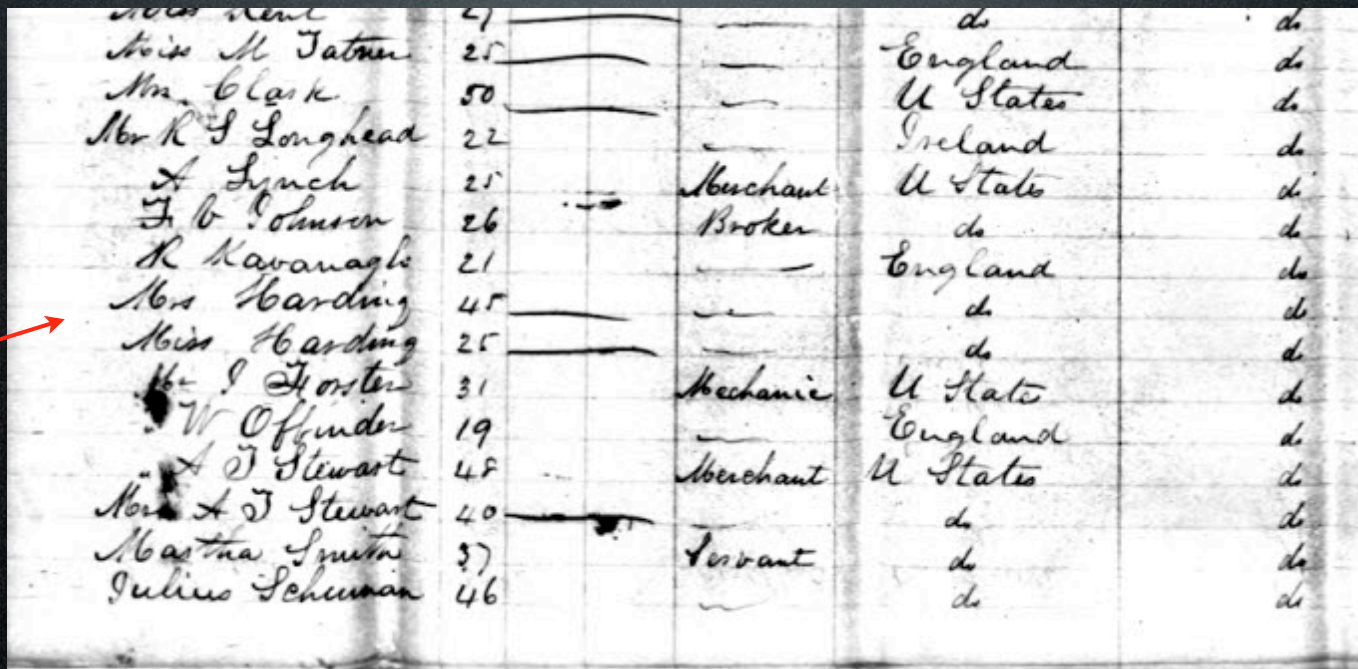 Kent 27 — do do
Miss M Tatner 25 — England do
Mrs. Clark 50 — U States do
Mr R S Longhead 22 — Ireland do
A Lynch 25 Merchant U States do
F C Johnson 26 Broker do do
R Kavanagh 21 — England do
Mrs Harding 45 — do do
Miss Harding 25 — do do
Mr J Forster 31 Mechanic U State do
" W Offinder 19 — England do
" A T Stewart 48 Merchant U States do
Mrs A T Stewart 40 — do do
Martha Smith 37 Servant do do
Julius Schuman 46 — do do